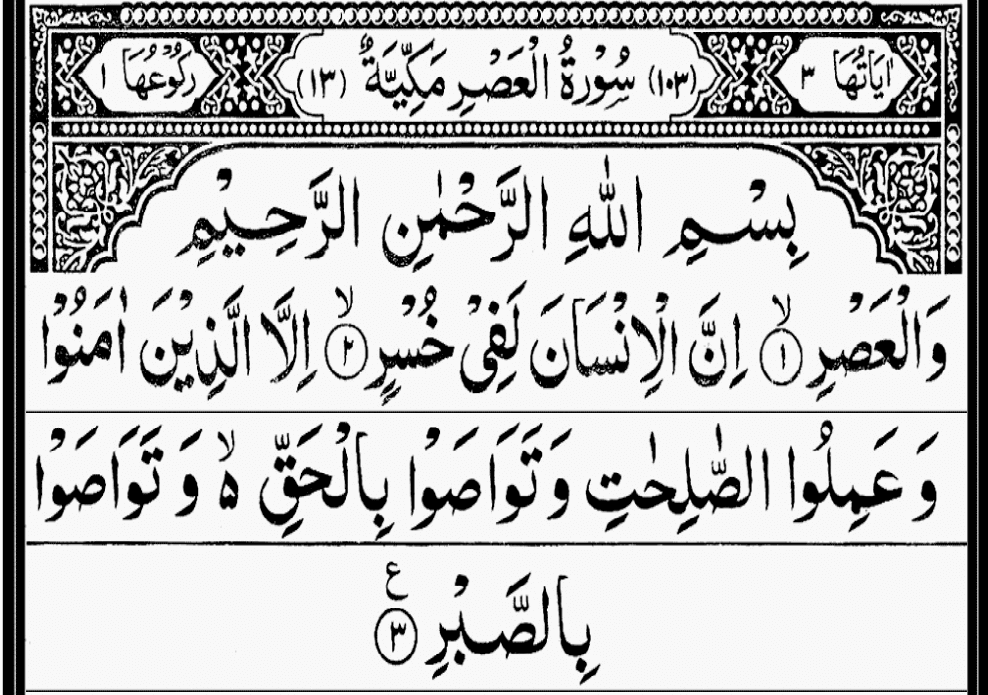 اٰيَاتُهَا ٣ (١٠٣) سُوْرَةُ الْعَصْرِ مَكِّيَّةٌ (١٣) رَكُوْعُهَا ١
بِسْمِ اللّٰهِ الرَّحْمٰنِ الرَّحِيْمِ
وَالْعَصْرِ ۙ﴿١﴾ اِنَّ الْاِنْسَانَ لَفِيْ خُسْرٍ ۙ﴿٢﴾ اِلَّا الَّذِيْنَ اٰمَنُوْا
وَ عَمِلُوا الصّٰلِحٰتِ وَ تَوَاصَوْا بِالْحَقِّ ۙ۵ وَ تَوَاصَوْا
بِالصَّبْرِ ﴿٣﴾ ع